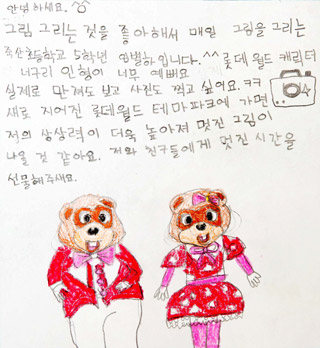 안녕하세요.
그림 그리는 것을 좋아해서 매일 그림을 그리는
죽산초등학교 5학년 입니다.^^ 롯데월드 캐릭터
너구리 인형이 너무 예뻐요
실제로 만져도 보고 사진도 찍고 싶어요.ㅋㅋ
새로 지어진 롯데월드 테마파크에 가면
저의 상상력이 더욱 높아져 멋진 그림이
나올 것 같아요. 저와 친구들에게 멋진 시간을
선물해주세요.